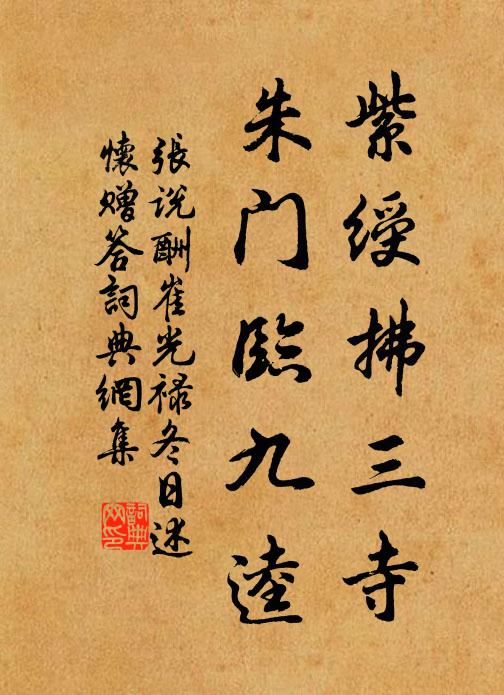 紫綬拂三寺
朱门臨九逵
張说酬崔光禄冬日述
懷赠答詞典網集
詞典网印